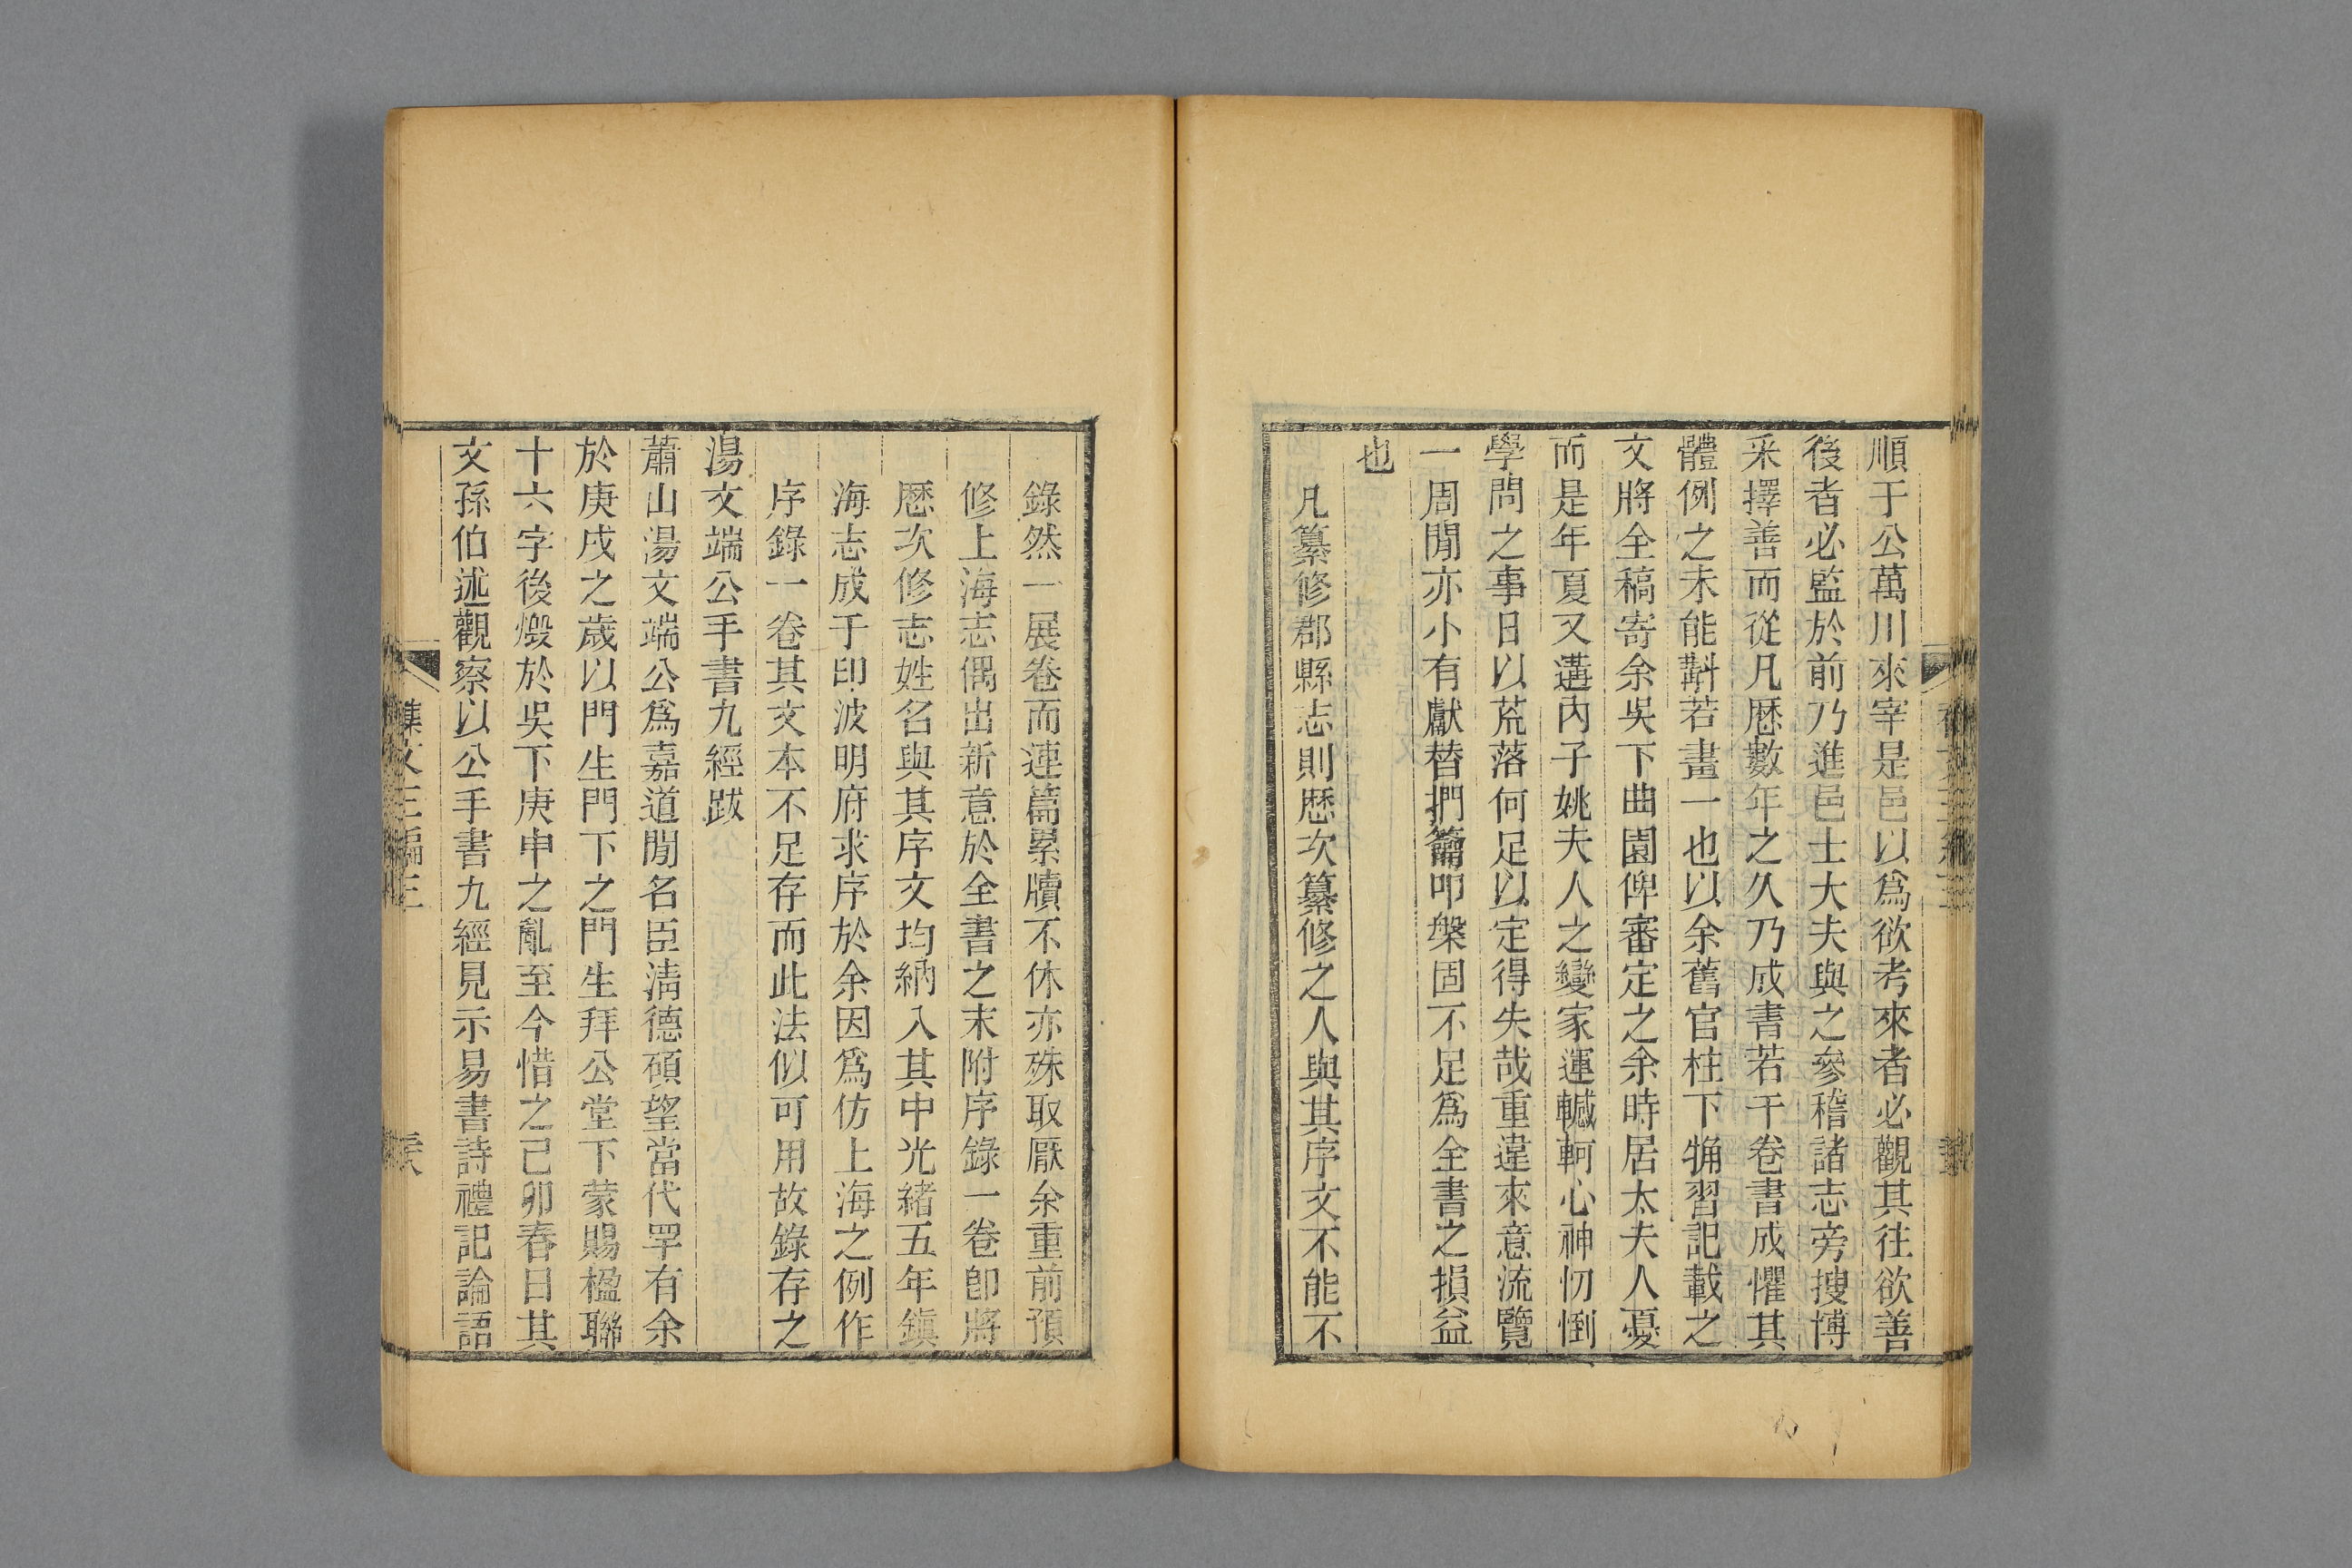 順于公萬川來宰是邑以爲欲考來者必觀其往欲善
後者必監於前乃進邑士大夫與之參稽諸志旁搜博
采擇善而從凡厯數年之久乃成書若干卷書成懼其
體例之未能斠若畫一也以余舊官柱下犕習記載之
文將全稿寄余吳下曲園俾審定之余時居太夫人憂
而是年夏又遘內子姚夫人之變家運轗軻心神忉倒
學問之事日以荒落何足以定得失哉重違來意流覽
一周閒亦小有獻替捫籥叩槃固不足爲全書之損益
也
凡纂修郡縣志則厯次纂修之人與其序文不能不
錄然一展卷而連篇累牘不休亦殊取厭余重前預
修上海志偶出新意於全書之末附序錄一卷卽將
厯次修志姓名與其序文均納入其中光緒五年鎮
海志成于印波明府求序於余因爲仿上海之例作
序錄一卷其文本不足存而此法似可用故錄存之
湯文端公手書九經跋
蕭山湯文端公爲嘉道閒名臣淸德碩望當代罕有余
於庚戌之歲以門生門下之門生拜公堂下蒙賜楹聯
十六字後燬於吳下庚申之亂至今惜之己卯春日其
文孫伯述觀察以公手書九經見示易書詩禮記論語